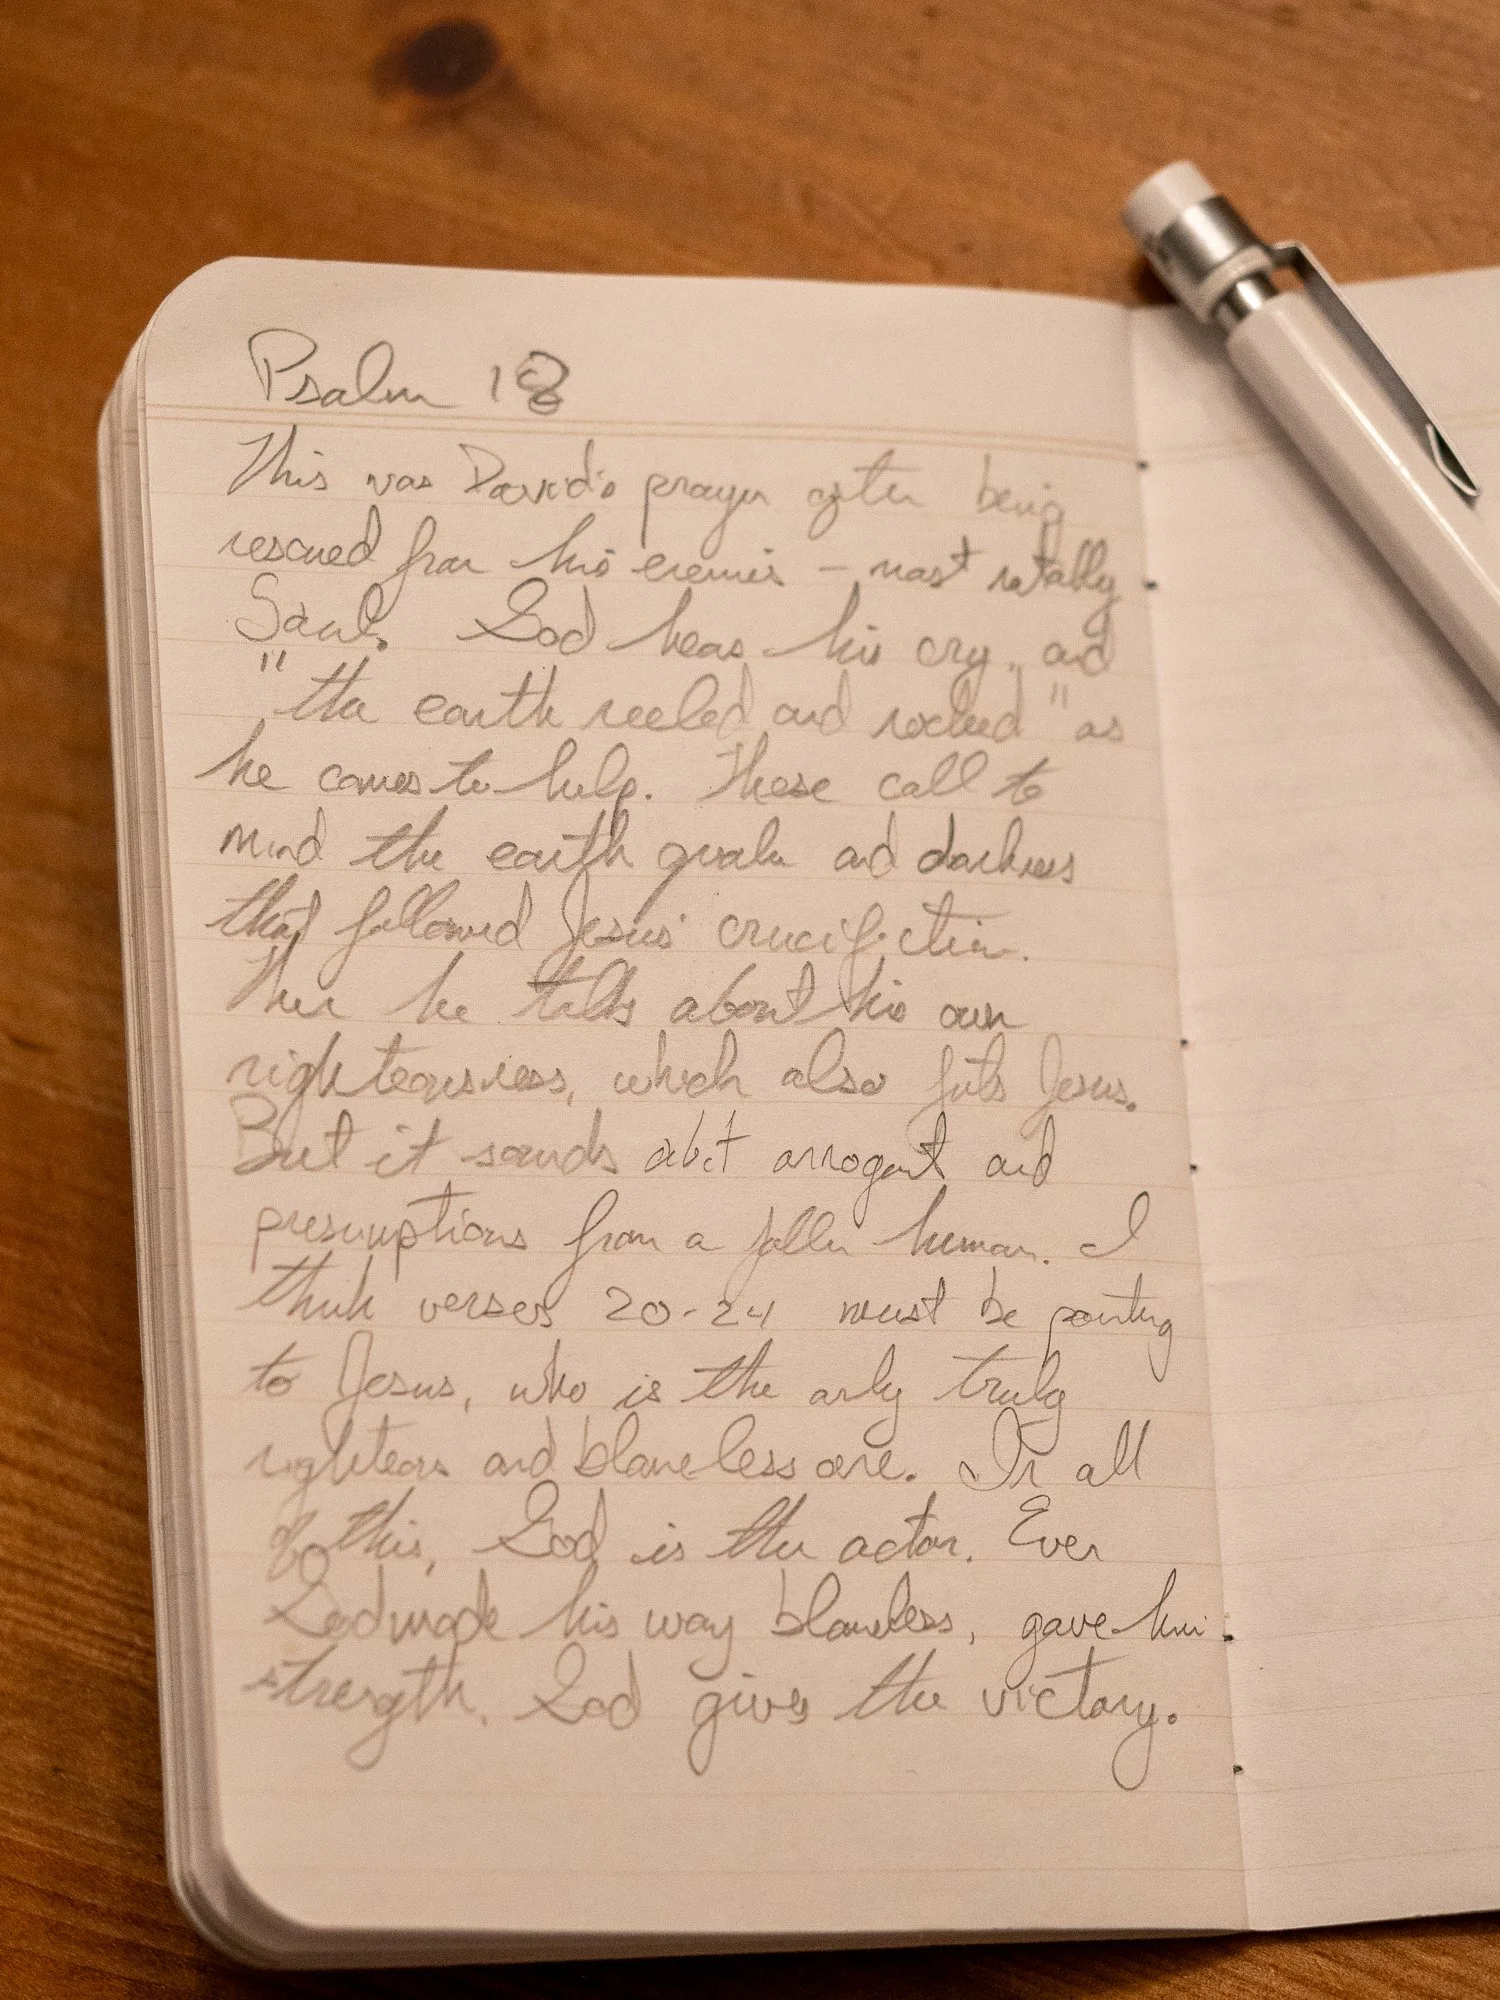 Psalm 18
This was David's prayer after being
rescued from his enemies – most notably
Saul. God hears his cry, and
"the earth reeled and rocked" as
he comes to help. These call to
mind the earth quake and darkness
that followed Jesus' crucifiction.
Then he talks about his own
righteousness, which also fits Jesus.
But it sounds abit arrogant and
presumptions from a fallen human. I
think verses 20-24 must be pointing
to Jesus, who is the only truly
righteous and blameless one. In all
of this, God is the actor. Even
God made his way blameless, gave him
strength. God gives the victory.